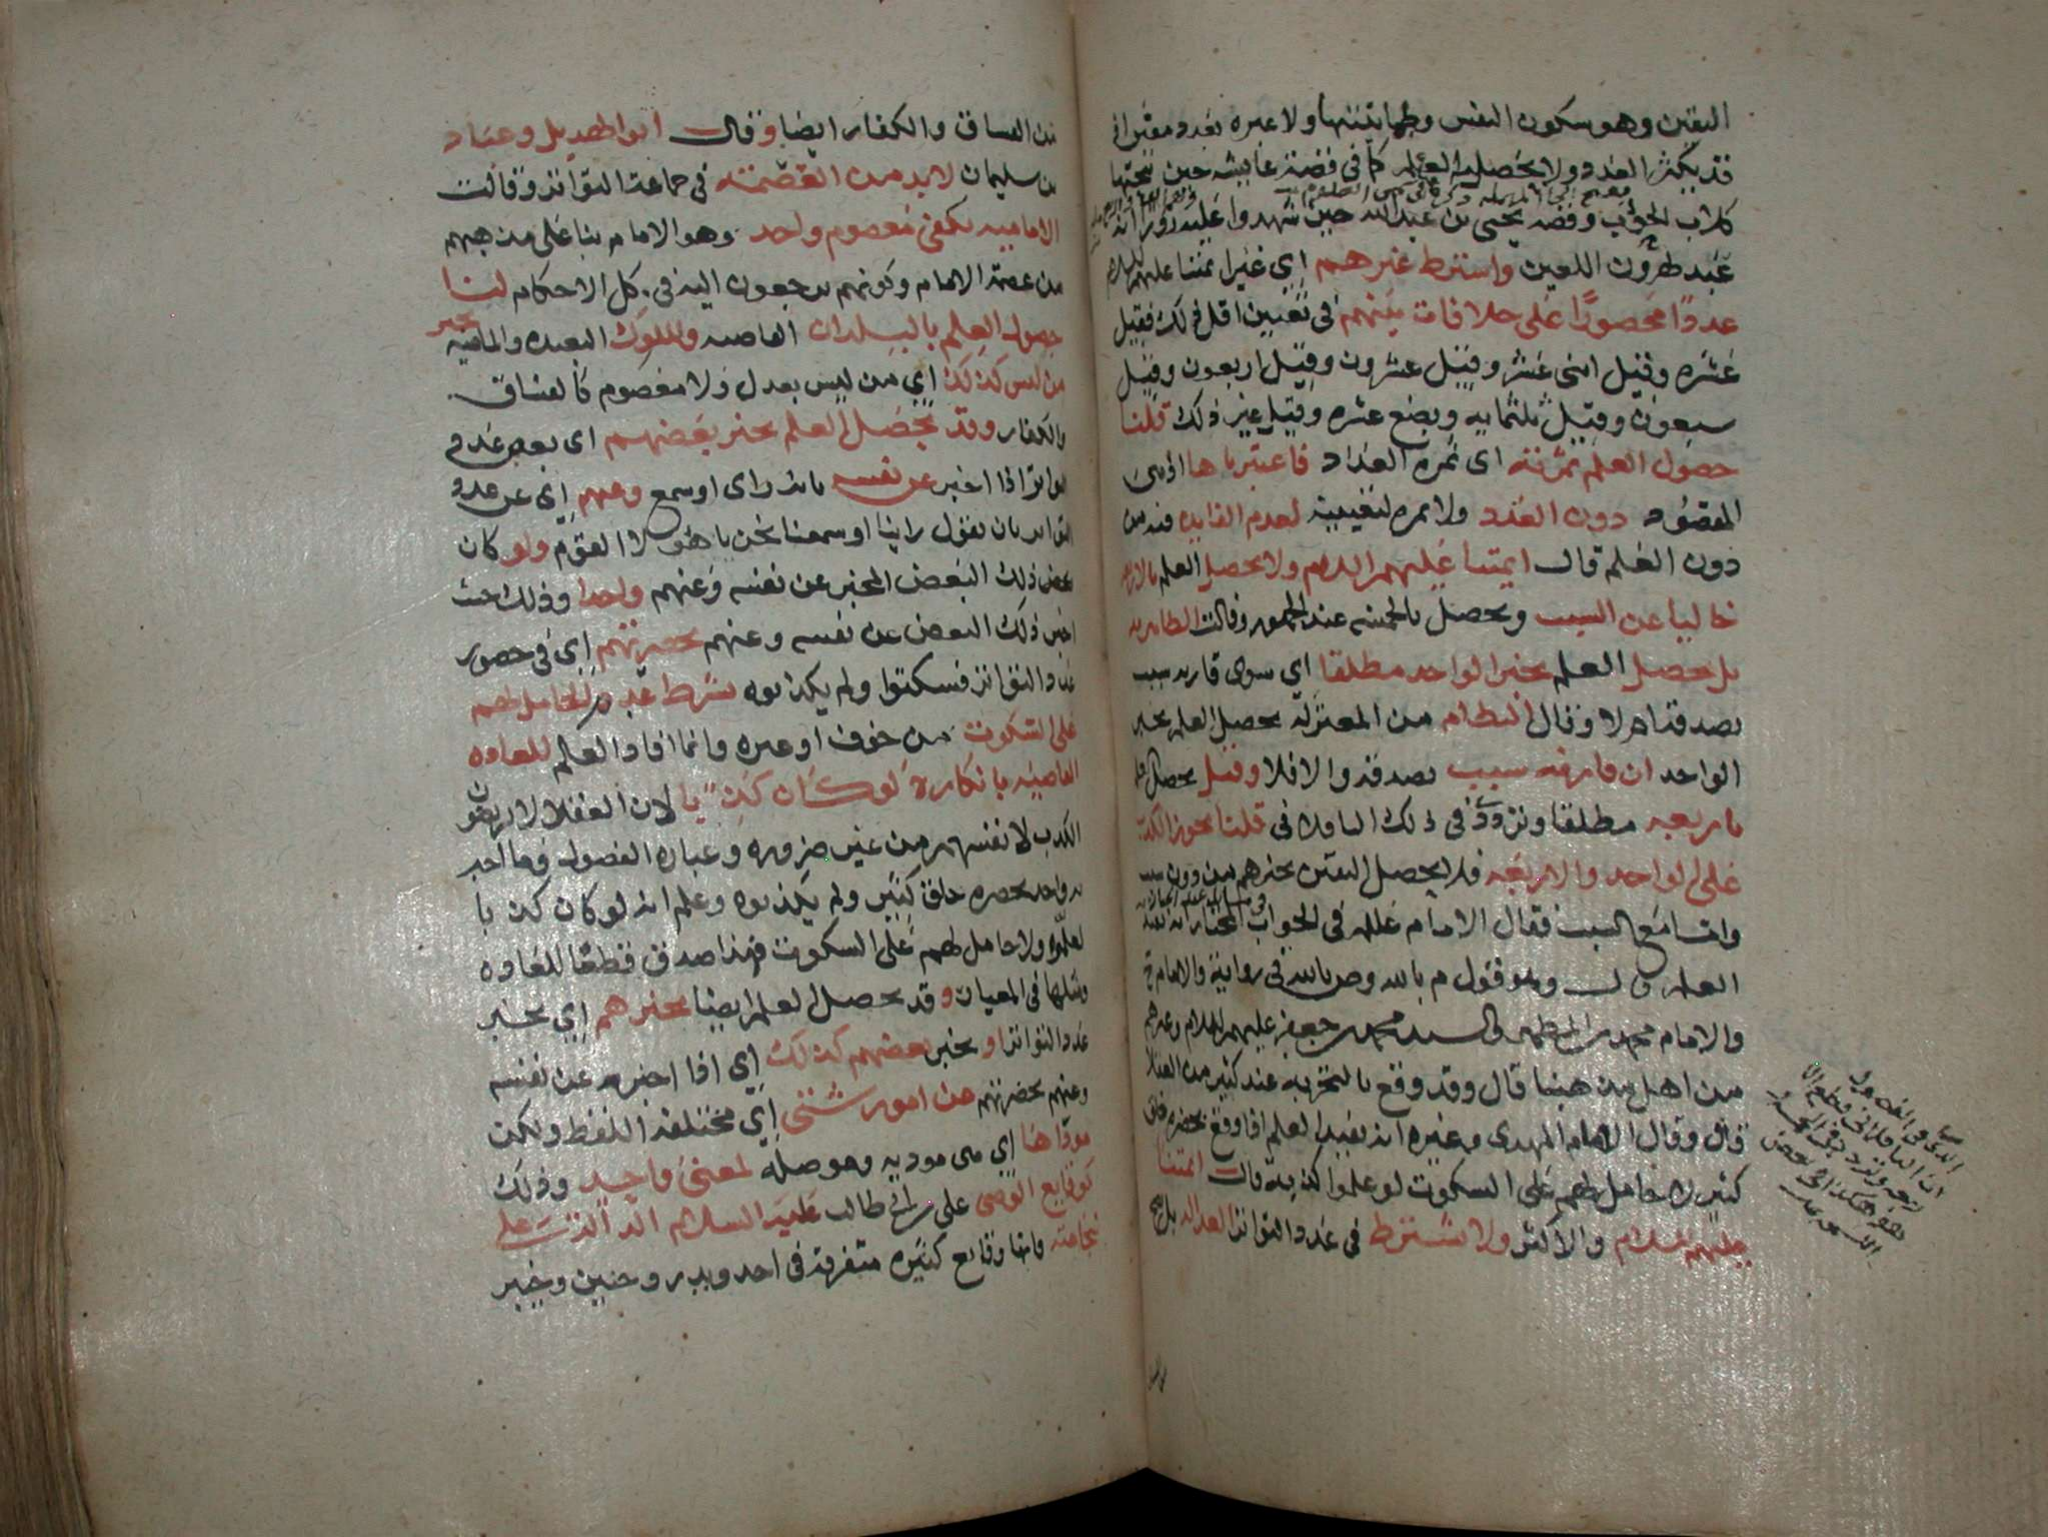 اليقين وهو سكون النفس وطمانينتها ولا عبره بعدد معين اذ
قد يكثر العدد ولا يحصل العلم كما في قصة عايشه حين نبحتها
كلاب الحوأب وقصه يحيى بن عبدالله حين شهدوا عليه زورا انه
عبد لهرون اللعين واشترط غيرهم اي غير ايمتنا عليهم السلام
عددا محصورا على خلافات بينهم في تعيين اقل ذلك فقيل
عشره وقيل اثنى عشر وقيل عشرون وقيل اربعون وقيل
سبعون وقيل ثلثمايه وبضع عشره وقيل غير ذلك قلنا
حصول العلم ثمرته اى ثمره العداد فاعتبرناها اذ هى
المقصوده دون العدد ولا ثمره لتعيينه لعدم الفايده فيه من
دون العلم قال ايمتنا عليهم السلام ولا يحصل العلم بالاربعه
خاليا عن السبب ويحصل بالخمسه عند الجمهور وقالت الظاهريه
بل يحصل العلم بخبر الواحد مطلقا اي سوى قارنه سبب
يصدقه ام لا وقال النظام من المعتزلة يحصل العلم بخبر
الواحد ان قارنه سبب يصدقه والا فلا وقيل يحصل
باربعه مطلقا وتردد في ذلك الباقلاني قلنا يجوز الكذب
على الواحد والاربعه فلا يحصل اليقين بخبرهم من دون سبب
واما مع السبب فقال الامام عللم في الجواب المختار انه يفيد
العلم قال وهو قول م بالله وص بالله في رواية والامام ي
والامام محمد بن المطهر والسيد محمد بن جعفر عليهم السلام وغيرهم
من اهل بيتنا قال وقد وقع بالتجربه عند كثير من العقلا
قال وقال الامام المهدى وغيره انه يفيد العلم اذا وقع بحضره خلق
كثير لا حامل لهم على السكوت لو علموا كذبه قالت ايمتنا
عليهم السلام والاكثر ولا يشترط في عدد التواتر العداله بل يصح
من الفساق والكفار ايضا وقال ابوالهذيل وعباد
بن سليمان لا بد من العصمة في جماعة التواتر وقالت
الاماميه يكفي معصوم واحد وهو الامام بنا على مذهبهم
من عصمة الامام وكونهم يرجعون اليه في كل الاحكام لنا
حصول العلم بالبلدان القاصيه والملوك البعيده والماضيه بخبر
من ليس كذلك اي من ليس بعدل ولا معصوم كالفساق
والكفار وقد يحصل العلم بخبر بعضهم اى بعض عدد
التواتر اذا اخبر عن نفسه بانه راى او سمع وعنهم اي عن عدد
التواتر بان يقول راينا او سمعنا نحن يا هولا القوم ولو كان
بعض ذلك البعض المخبر عن نفسه وعنهم واحدا وذلك حيث
اخبر ذلك البعض عن نفسه وعنهم بحضرتهم اي في حضور
عدد التواتر فسكتوا ولم يكذبوه بشرط عدم الحامل لهم
على السكوت من خوف او غيره وانما افاد العلم للعاده
القاضيه بانكاره لو كان كذبا لان العقلا لا يرضون
الكذب لانفسهم من غير ضروره وعباره الفصول وما اخبر
به واحد بحضره خلق كثير ولم يكذبوه وعلم انه لو كان كذبا
لعلموه ولا حامل لهم على السكوت فهذا صدق قطعا للعاده
ومثلها في المعيار وقد يحصل العلم ايضا بخبرهم اي بخبر
عدد التواتر او بخبر بعضهم كذلك اي اذا اخبر عن نفسه
وعنهم بحضرتهم عن امور شتى اي مختلفة اللفظ ولكن
موداها اي هي موديه وموصله لمعنى واحد وذلك
كوقايع الوصي على بن ابي طالب عليه السلام الدالة على
شجاعته فانها وقايع كثيره متفرقه في احد وبدر وحنين وخيبر